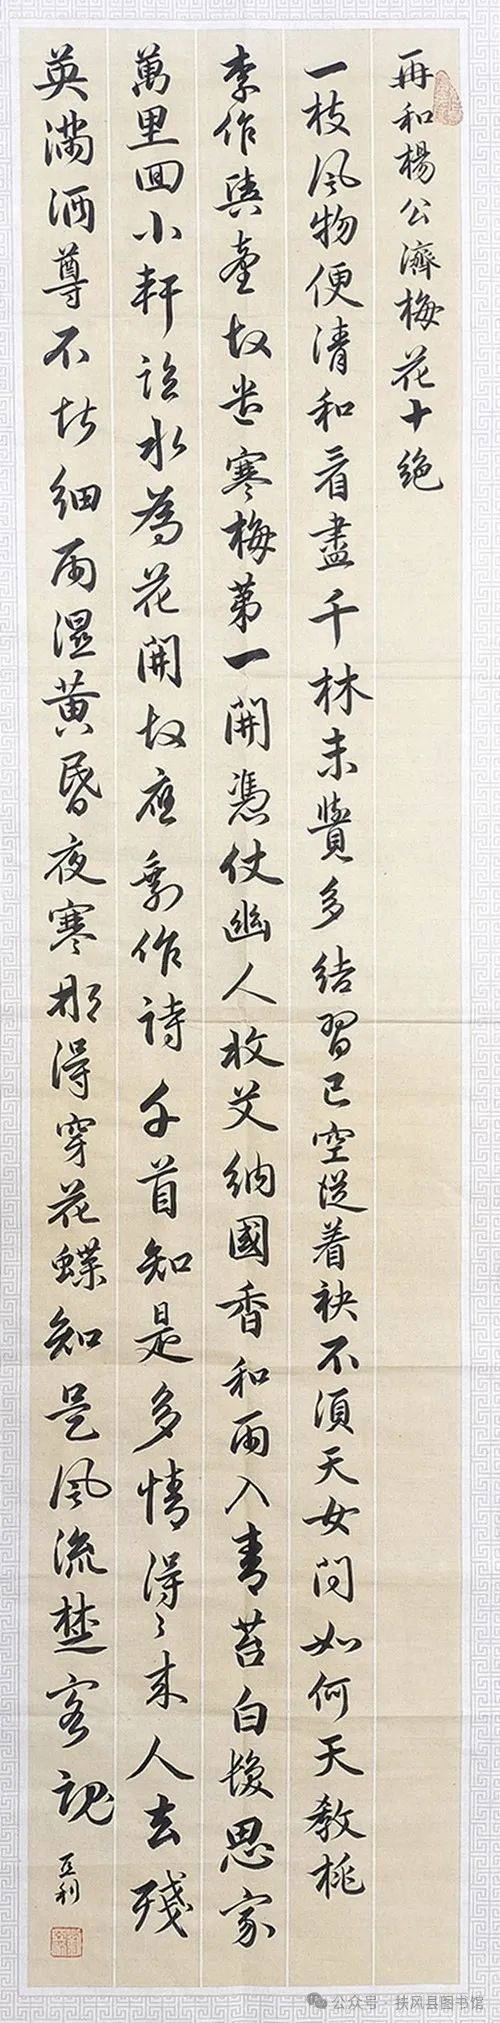 再和楊公濟梅花十絕
一枝風物便清和看盡千林未覺多結習已空從着袂不須天女問如何天教桃
李作輿臺故遣寒梅第一開憑仗幽人收艾納國香和雨入青苔白髮思家
萬里回小軒臨水為花開故應剩作詩千首知是多情得々來人去殘
英滿酒尊不堪細雨濕黃昏夜寒那得穿花蝶知是風流楚客魂
亞利
公众号·扶风县图书馆